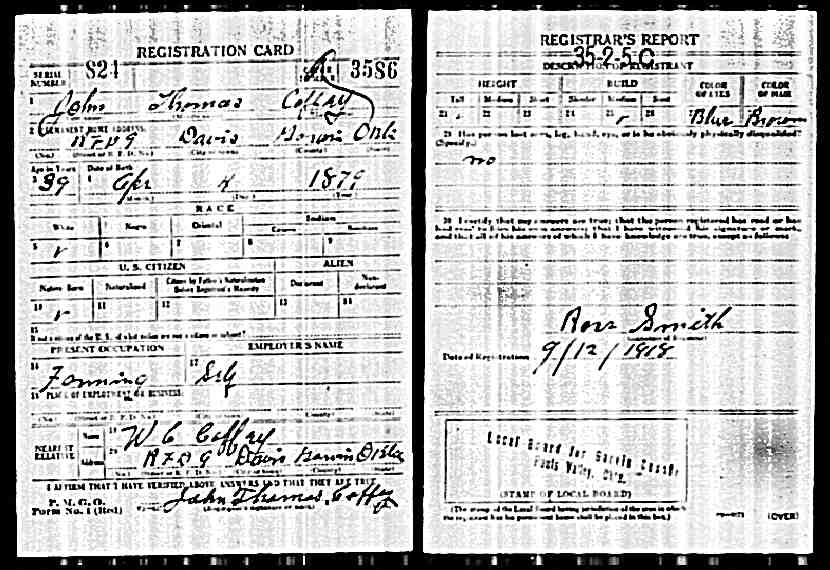 REGISTRATION CARD
SERIAL NUMBER 824 3586
1 John Thomas Coffay
2 PERMANENT HOME ADDRESS:
RFD 9 Davis Garvin Okla
(No.) (Street or R. F. D. No.) (City or town) (County) (State)
Age in Years Date of Birth
3 39 4 Apr 4 1879
(Month.) (Day.) (Year.)
RACE
White Negro Oriental Indian
Citizen Noncitizen
5 6 7 8 9
U. S. CITIZEN ALIEN
Native Born Naturalized Citizen by Father's Naturalization Before Registrant's Majority Declarant Non-declarant
10 11 12 13 14
15
If not a citizen of the U. S., of what nation are you a citizen or subject?
PRESENT OCCUPATION EMPLOYER'S NAME
16 Farming 17 Self
18 PLACE OF EMPLOYMENT OR BUSINESS:
(No.) (Street or R. F. D. No.) (City or town) (County) (State)
NEAREST RELATIVE Name 19 W C Coffay
Address 20 RFD 9 Davis Garvin Okla
I AFFIRM THAT I HAVE VERIFIED ABOVE ANSWERS AND THAT THEY ARE TRUE
P. M. G. O.
Form No. 1 (Red) John Thomas Coffay
REGISTRAR'S REPORT
35-2-5 C
DESCRIPTION OF REGISTRANT
HEIGHT BUILD COLOR OF EYES COLOR OF HAIR
Tall Medium Short Slender Medium Stout
21 22 23 24 25 26 Blue Brown
29 Has person lost arm, leg, hand, eye, or is he obviously physically disqualified?
(Specify.)
no
30 I certify that my answers are true; that the person registered has read or has had read to him his own answers; that I have witnessed his signature or mark, and that all of his answers of which I have knowledge are true, except as follows:
Smith
Date of Registration 9/12/1918
Local Board for Garvin County
Pauls Valley, Okla.
(STAMP OF LOCAL BOARD)
(The stamp of the Local Board having jurisdiction of the area in which the registrant has his permanent home shall be placed in this box.)
(OVER)